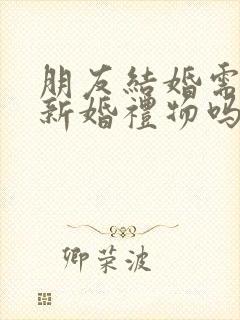 朋友結婚需
新婚禮物吗
卿荣波